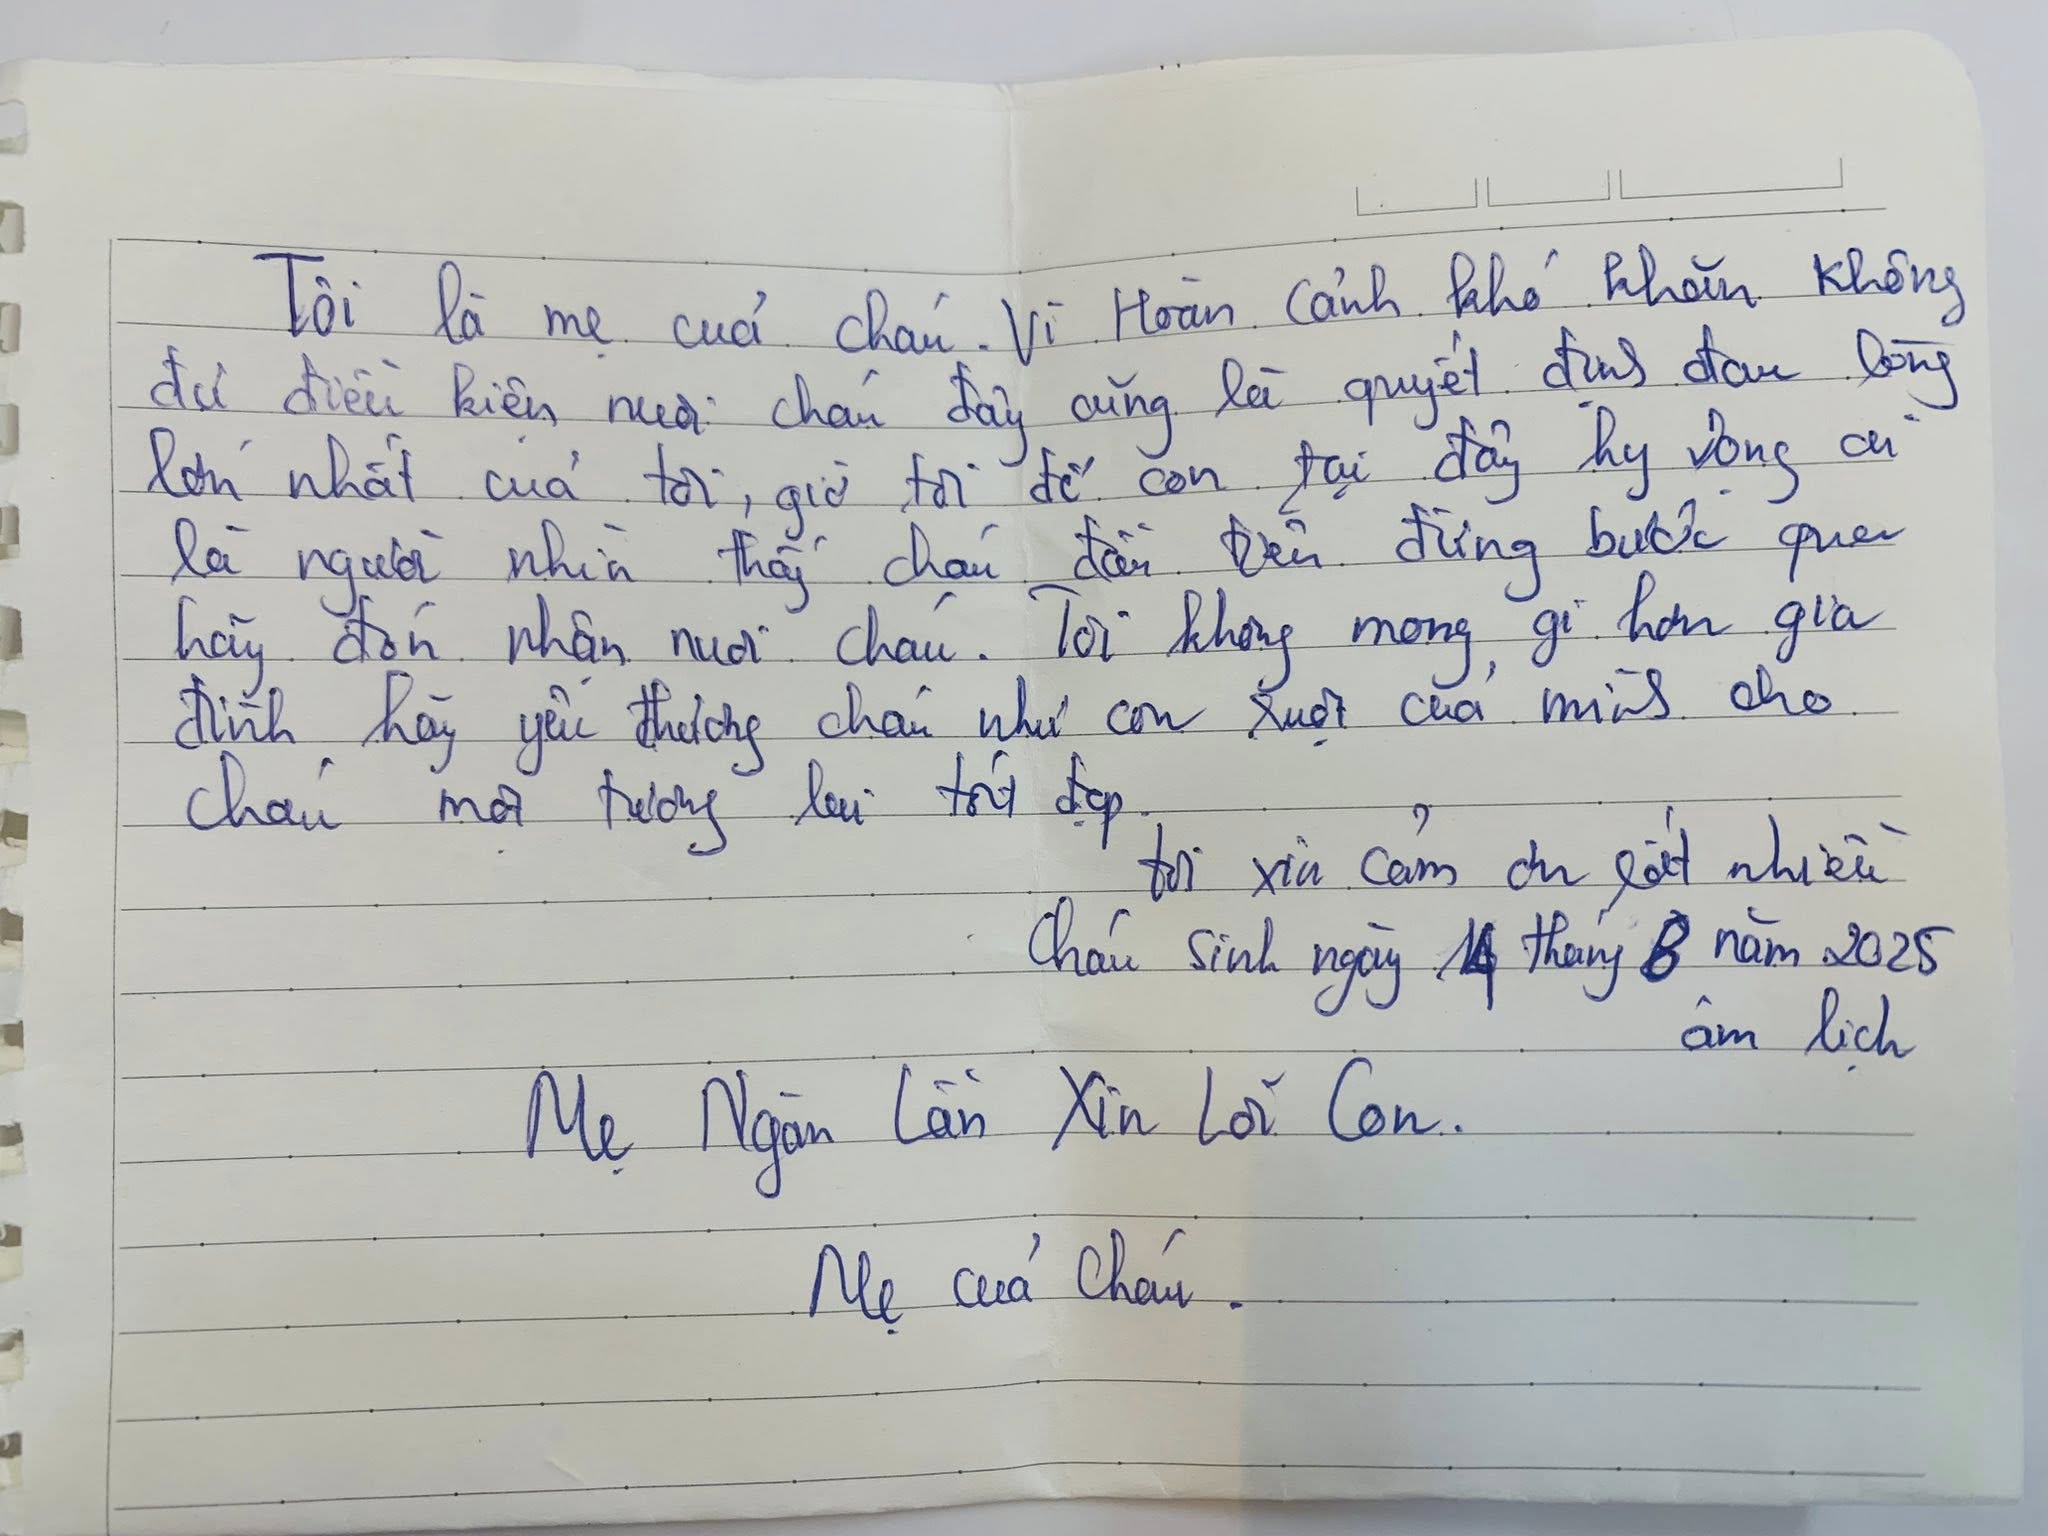 Tôi là mẹ cuả cháu. Vì Hoàn cảnh khó khăn không
đủ điều kiện nuôi cháu đây cũng là quyết định đau lòng
lớn nhất cuả tôi, giờ tôi để con tại đây hy vọng ai
là người nhìn thấy cháu đầu tiên đừng bước qua
hãy đón nhận nuôi cháu. Tôi không mong gì hơn gia
đình hãy yêu thương cháu như con ruột cuả mình cho
cháu một tương lai tốt đẹp.
tôi xin cảm ơn rất nhiều
Cháu sinh ngày 14 tháng 8 năm 2025
âm lịch
Mẹ Ngàn Lần Xin Lỗi Con.
Mẹ cuả Cháu.